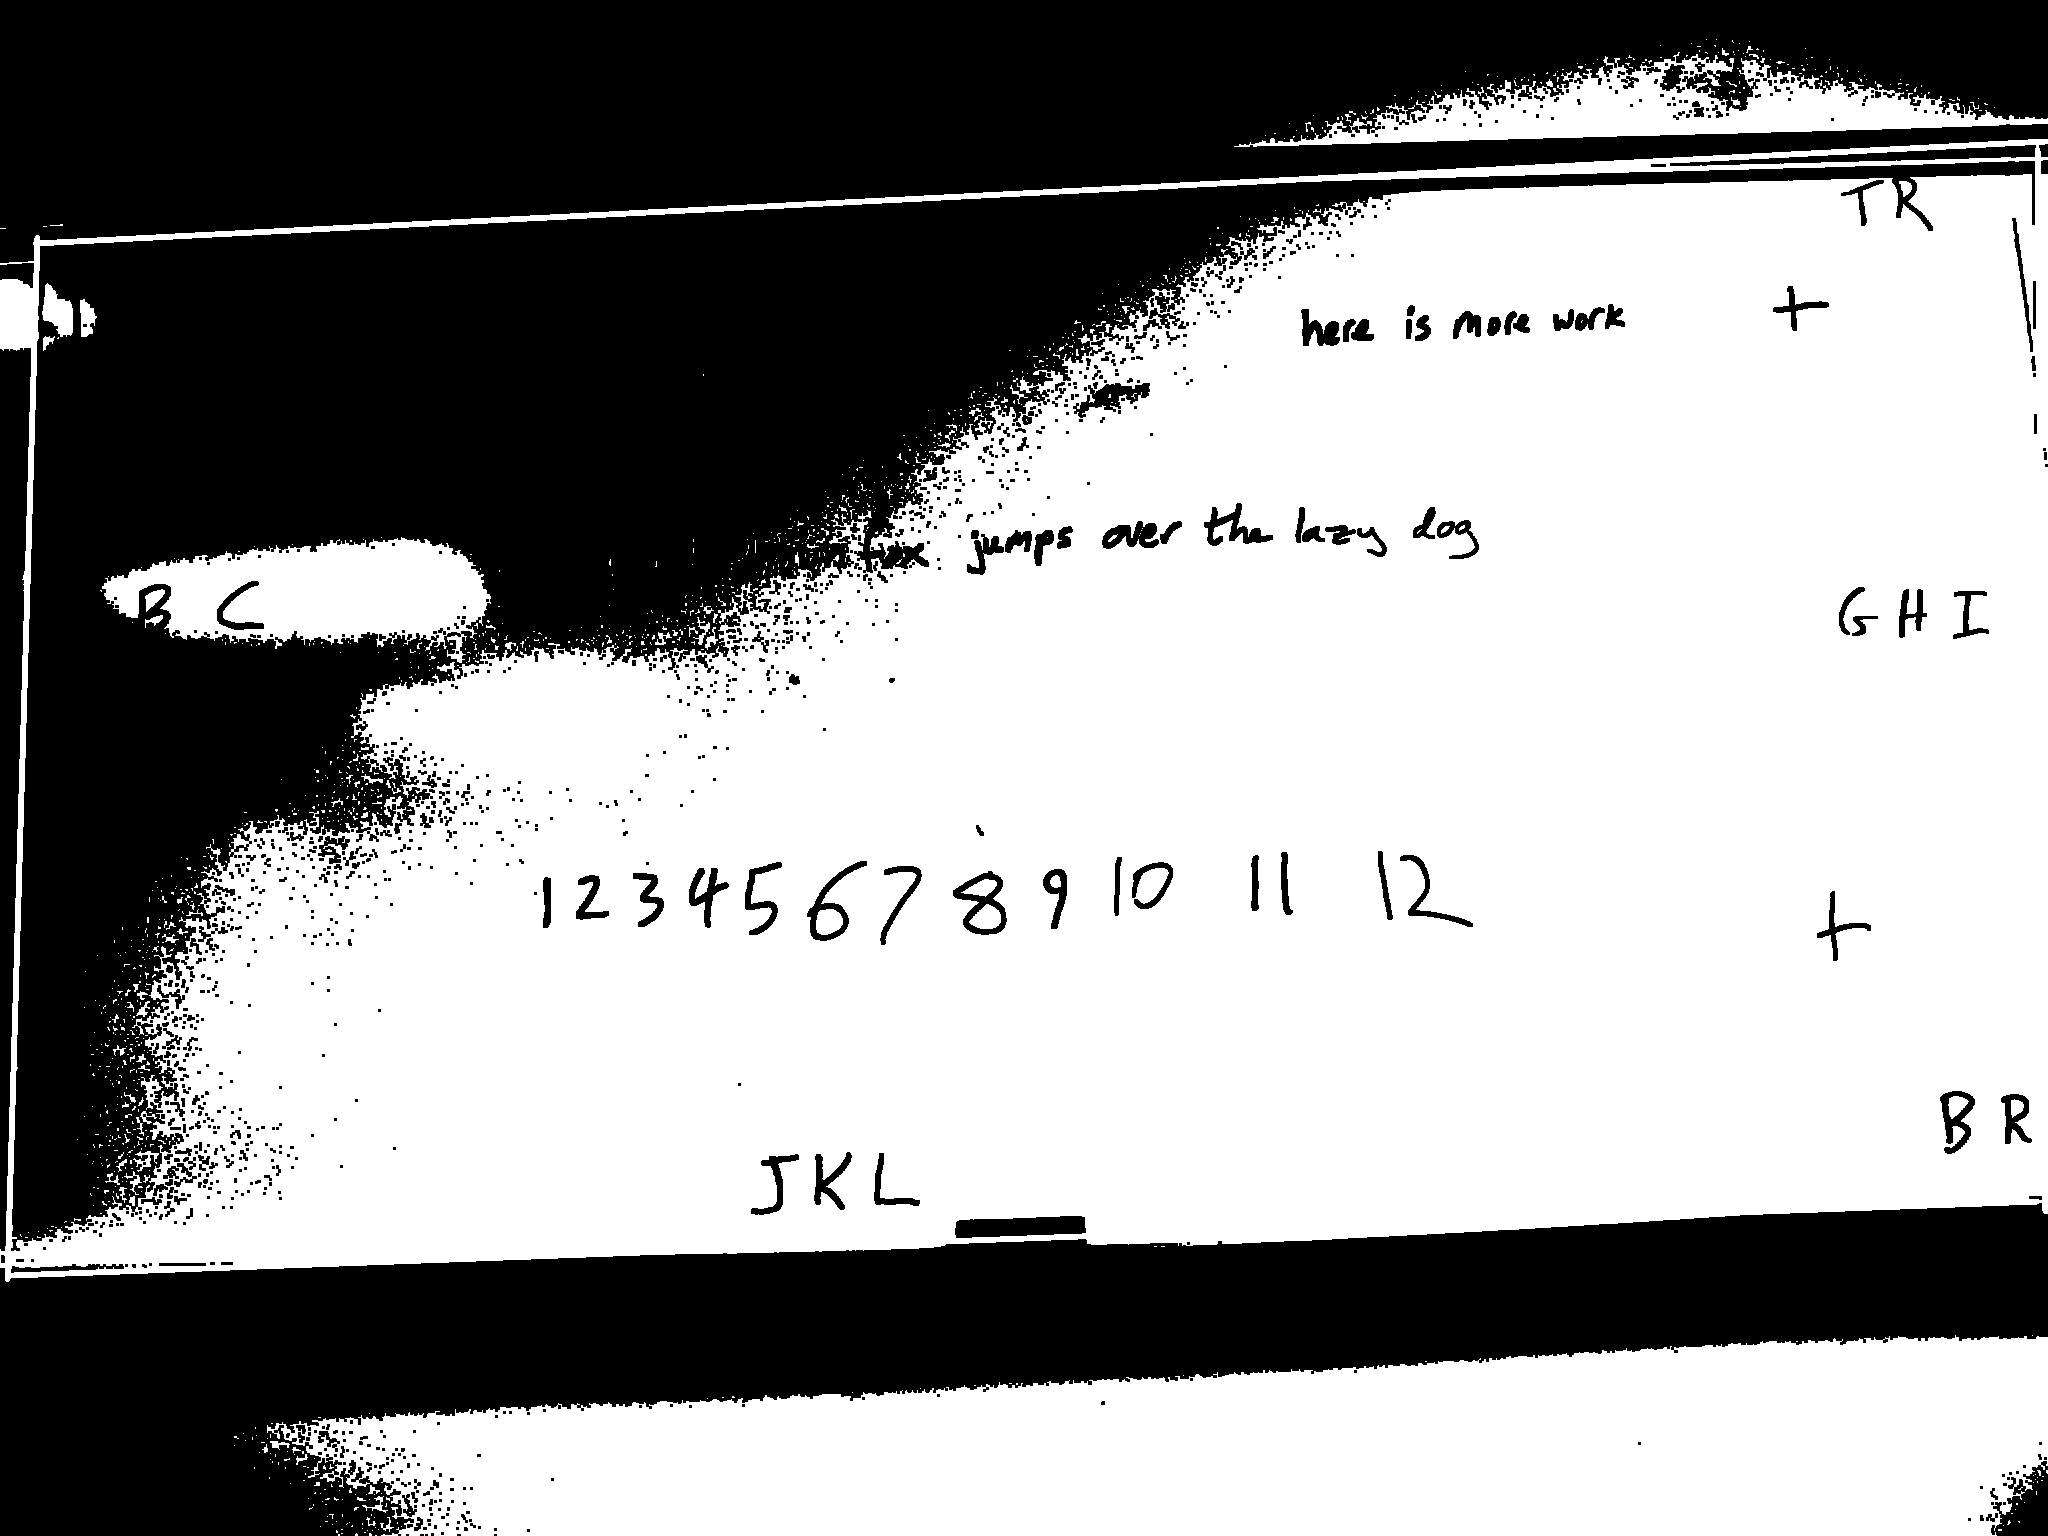 TR
here is more work
fox jumps over the lazy dog
B C
G H I
1 2 3 4 5 6 7 8 9 10 11 12
BR
JKL